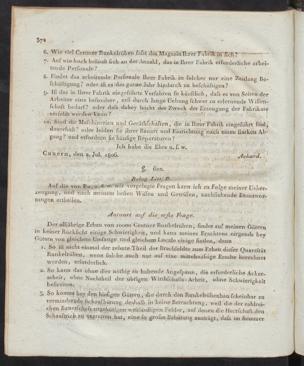 372
6. Wie viel Centner Runkelrüben faßt das Magazin Ihrer Fabrik in sich?
7. Auf wie hoch beläuft sich an der Anzahl, das in Ihrer Fabrik erforderliche arbei-
tende Personale?
8. Findet das arbeitende Personale Ihrer Fabrik in solcher nur eine Zeitlang Be-
schäftigung? oder ist es das ganze Jahr hindurch zu beschäftigen?
9. Ist das in Ihrer Fabrik eingeführte Verfahren so künstlich, daß es von Seiten der
Arbeiter eine besondere, erst durch lange Uebung schwer zu erlernende Wissen-
schaft bedarf? oder daß dabey leicht der Zweck der Erzeugung der Fabrikate
verfehlt werden kann?
10. Sind die Maschinerien und Geräthschaften, die in Ihrer Fabrik eingeführt sind,
dauerhaft? oder leiden sie ihrer Bauart und Einrichtung nach einen starken Ab-
gang? und erfordern sie häufige Reparaturen?
Ich habe die Ehre u. s. w.
Cunern, den 2. Jul. 1806. Achard.
Beilag Litt. D.
Auf die von vorgelegte Fragen kann ich zu Folge meiner Ueber-
zeugung, und nach meinem besten Wissen und Gewissen, nachstehende Beantwor-
tungen ertheilen.
Antwort auf die erste Frage.
Der alljährige Erbau von 10000 Centner Runkelrüben, findet auf meinen Gütern
in keiner Rücksicht einige Schwierigkeit, und kann meines Erachtens nirgends bey
Gütern von gleichem Umfange und gleichem Locale einige finden, denn
1. So ist nicht einmal der zehnte Theil der Brachfelder zum Erbau dieser Quantität
Runkelrüben, wenn solche auch nur auf eine mittelmäßige Erndte berechnet
werden, erforderlich.
2. So kann das ohne dies nöthig zu habende Angespann, die erforderliche Acker-
arbeit, ohne Nachtheil der übrigen Wirthschafts-Arbeit, ohne Schwierigkeit
bestreiten.
3. So kommt bey den hiesigen Gütern, die durch den Runkelrübenbau scheinbar zu
vermindernde deshalb in keine Betrachtung, weil die der zahl-
reichen Felder, auf denen die Herrschaft den
Schaaftrieb zu exerciren hat, eine so große Behutung anträgt, daß im Sommer